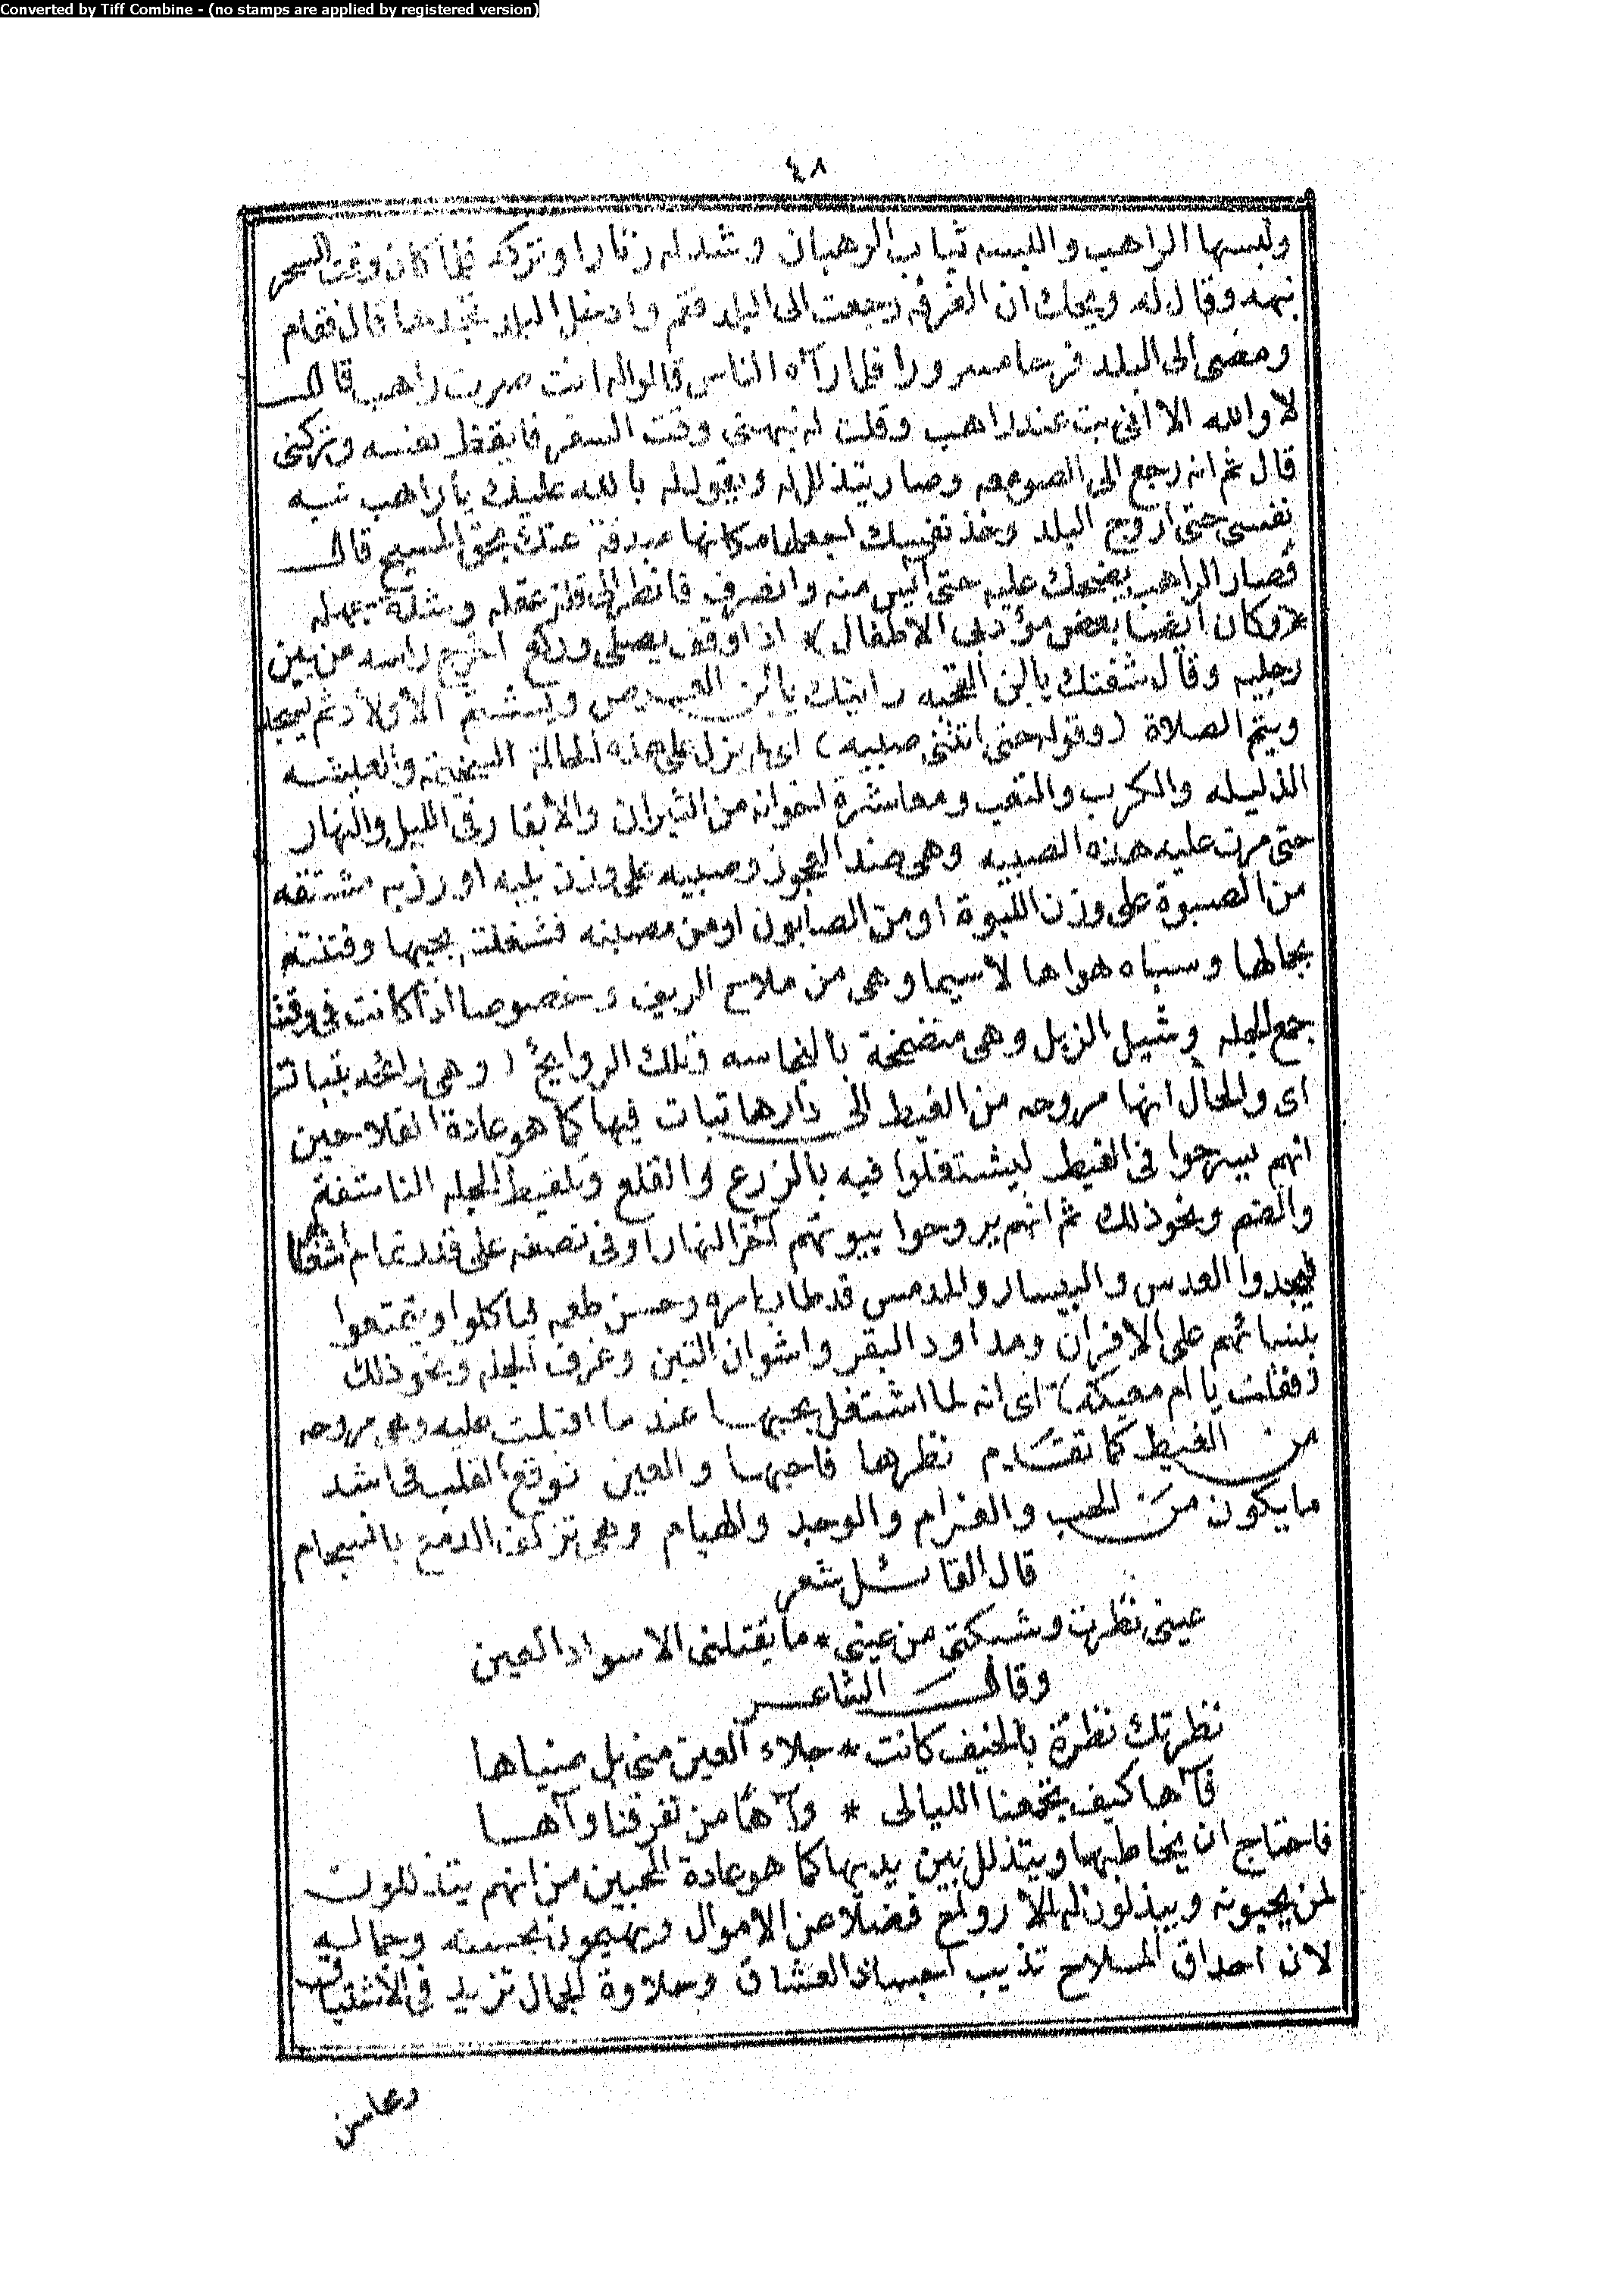 Converted by Tiff Combine - (no stamps are applied by registered version)
٤٨
ولبسها الراهب والبسه ثياب الرهبان وشد له زنارا وتركه فلما كان وقت السحر
نبهه وقال له ويحك ان الغرفه رجعت الى البلد فقم وادخل البلد تجدها قال فقام
ومضى الى البلد فرحا مسرورا فلما رآه الناس قالوا له انت صرت راهب قال
لا والله الا أنى بت عند راهب وقلت له نبهنى وقت السفر فايقظ نفسه وتركنى
قال ثم انه رجع الى الصومعه وصار يتذلل له ويقول له بالله عليك يا راهب نبه
نفسى حتى اروح البلد وخذ نفسك اجعلها مكانها صدقة عنك بحق المسيح قال
فصار الراهب يضحك عليه حتى آيس منه وانصرف فانظر الى قلة عقله وشدة جهله
*(وكان ايضا بعض مؤدبى الاطفال)* اذا وقف يصلى وركع اخرج راسه من بين
رجليه وقال شفتك يا ابن القحبه رايتك يا ابن ويشتم الاولاد ثم يسجد
ويتم الصلاة (وقوله حتى اتتنى صبيه) اى لم يزل على هذه الحالة والعيشه
الذليله والكرب والتعب ومعاشرة اخوانه من الثيران والأبقار فى الليل والنهار
حتى مرت عليه هذه الصبيه وهى ضد العجوز وصبيه على وزن بليه او رزيه مشتقه
من الصبوة على وزن اللبوة او من الصابون او من مصبنه فشغلته بحبها وفتنته
بجمالها وسباه هواها لا سيما وهى من ملاح الريف وخصوصا اذا كانت فى وقت
جمع الجله وشيل الزبل وهى متضمخة بالنجاسه وتلك الروايح (وهى رائحه بتباتت
اى والحال انها مروحه من الغيط الى دارها تبات فيها كما هو عادة الفلاحين
انهم يسرحوا فى الغيط ليشتغلوا فيه بالزرع والقلع وتلقيط الجله الناشفة
والضم ونحو ذلك ثم انهم يروحوا بيوتهم آخر النهار او فى نصفه على قدر تمام اشغالهم
فيجدوا العدس والبيسار والمدمس قد طاب امره وحسن طعمه فياكلوا ويتمتعوا
بنسائهم على الافران ومداود البقر واشوان التبن وغرف الجله ونحو ذلك
(فقلت يا ام معيكه) اى انه لما اشتغل بحبها عندما اقبلت عليه وهى مروحه
من الغيط كما تقدم نظرها فاحبها والعين توقع القلب فى اشد
ما يكون من الحب والغرام والوجد والهيام وهى تزكوه الدمع بانسجام
قال القائل شعر
عينى نظرت وشبكتى من عينى * ما يقتلنى الا سواد العين
وقال الشاعر
نظرتك نظرة بالخيف كانت * جلاء العين منى بل ضياها
فآها كيف تجمعنا الليالى * وآها من تفرقنا وآها
فاحتاج ان يخاطبها ويتذلل بين يديها كما هو عادة المحبين من انهم يتذللون
لمن يحبونه ويبذلون له الارواح فضلا عن الاموال ويهيمون بحسنه وجماله
لان احداق الملاح تذيب اجساد العشاق وحلاوة الجمال تزيد فى الاشتياق